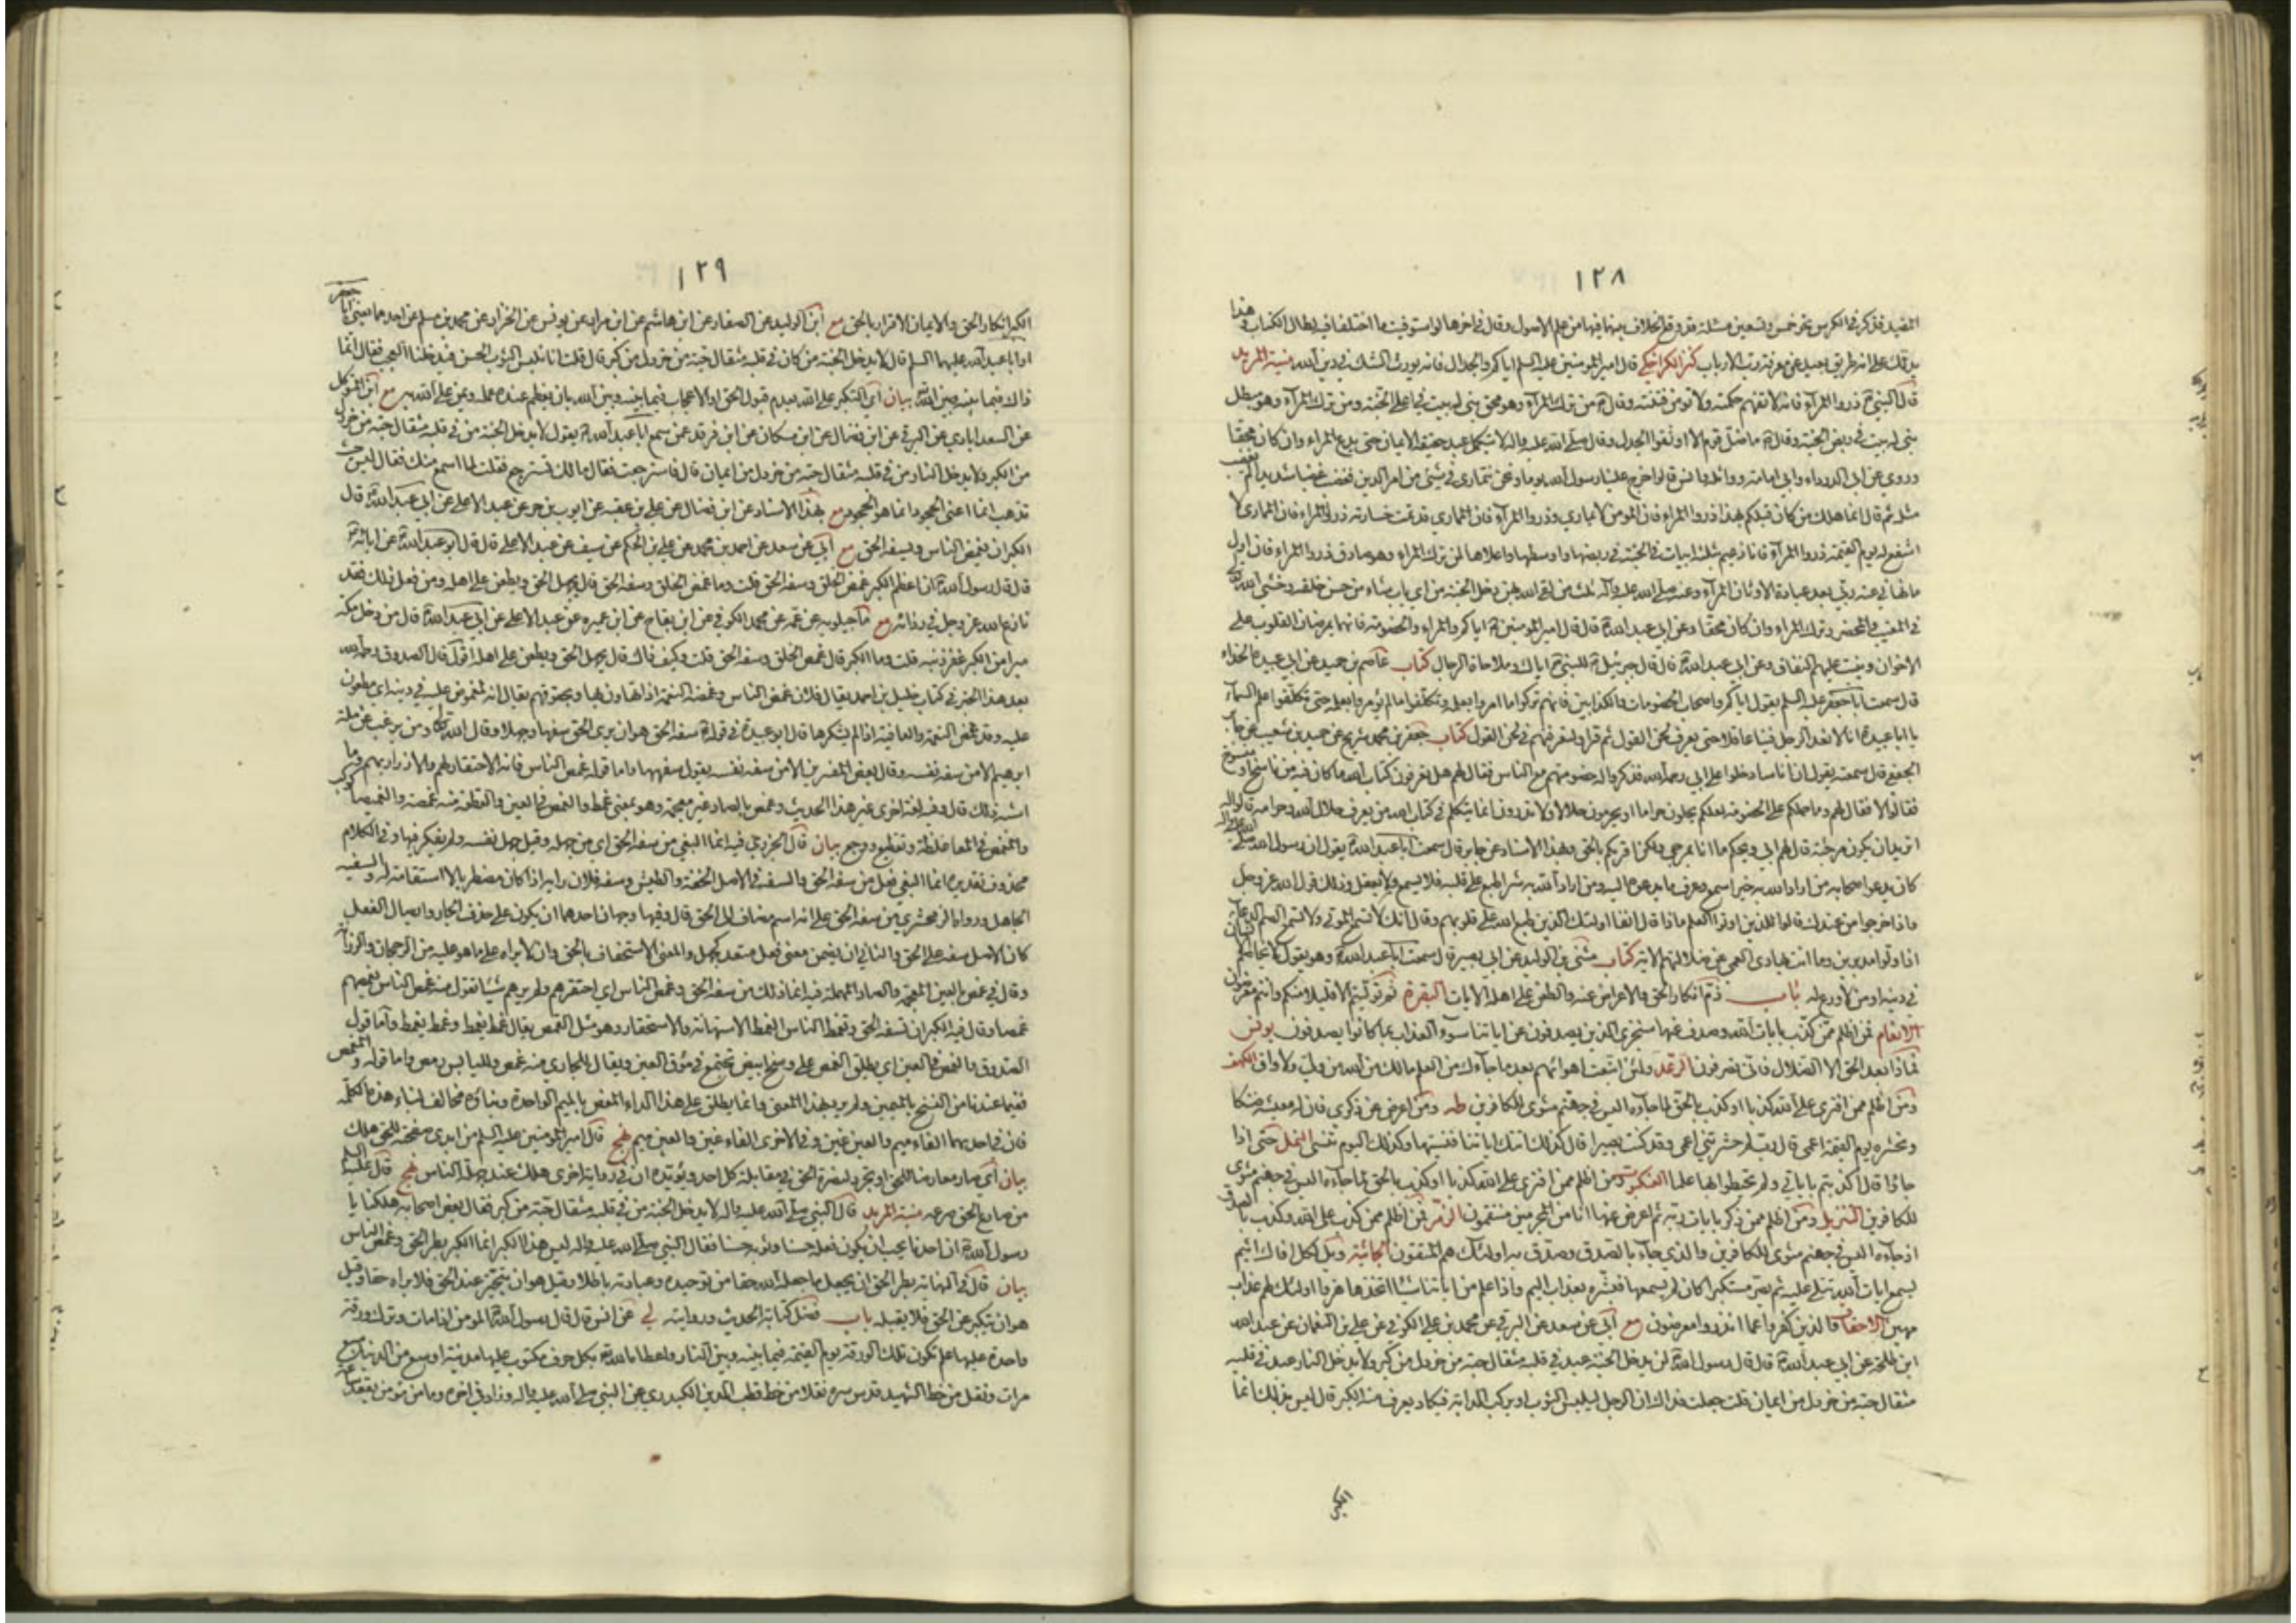 ١٢٨
المفيد فذكر في الكرس نحو خمس وتسعين مسئلة قد وقع الخلاف بينهما فيها من علم الاصول وقال في اخرها لو استوفيت ما اختلفا فيه لطال الكتاب وهذا
يدلك على انه طريق بعيد عن معرفة رب الارباب كنز الكراجكي قال امير المؤمنين عليه السلم اياكم والجدال فانه يورث الشك في دين الله منية المريد
قال النبي ص ذروا المرآء فانه لا تفهم حكمته ولا تؤمن فتنته وقال ص من ترك المرآء وهو محق بني له بيت في اعلى الجنة ومن ترك المرآء وهو مبطل
بني له بيت في ربض الجنة وقال ص ما ضل قوم الا اوثقوا الجدل وقال صلى الله عليه واله لا يستكمل عبد حقيقة الايمان حتى يدع المراء وان كان محقا
وروي عن ابي الدرداء وابي امامة وواثلة وانس قالوا خرج علينا رسول الله يوما ونحن نتمارى في شئ من امر الدين فغضب غضبا شديدا لم يغضب
مثله ثم قال انما هلك من كان قبلكم بهذا ذروا المراء فان المؤمن لا يماري وذروا المرآء فان المماري قد تمت خسارته ذروا المراء فان المماري لا
اشفع له يوم القيمة ذروا المرآء فانا زعيم بثلثة ابيات في الجنة في رياضها واوسطها واعلاها لمن ترك المراء وهو صادق ذروا المراء فان اول
ما نهاني عنه ربي بعد عبادة الاوثان المرآء وعنه صلى الله عليه واله ثلث من لقي الله بهن دخل الجنة من اي باب شاء من حسن خلقه وخشي الله
في المغيب والمحضر وترك المراء وان كان محقا وعن ابي عبد الله ع قال قال امير المؤمنين ع اياكم والمراء والخصومة فانهما يمرضان القلوب على
الاخوان وينبت عليهما النفاق وعن ابي عبد الله ع قال قال جبرئيل ع للنبي ص اياك وملاحاة الرجال كتاب عاصم بن حميد عن ابي عبيدة الحذاء
قال سمعت ابا جعفر عليه السلم يقول اياكم واصحاب الخصومات والكذابين فانهم تركوا ما امروا بعلمه وتكلفوا ما لم يؤمروا بعلمه حتى تكلفوا علم السمآء
يا ابا عبيدة انا لا نعد الرجل فينا عاقلا حتى يعرف لحن القول ثم قرا ولتعرفنهم في لحن القول كتاب جعفر بن محمد بن شريح عن حميد بن شعيب عن جابر
الجعفي قال سمعته يقول ان اناسا دخلوا على ابي رحمه الله فذكروا له خصومتهم مع الناس فقال لهم هل تعرفون كتاب الله ما كان فيه من ناسخ او منسوخ
فقالوا لا فقال لهم وما حملكم على الخصومة لعلكم تحلون حراما او تحرمون حلالا ولا تدرون انما يتكلم في كتاب الله من يعرف حلال الله وحرامه قالوا له
اتريد ان نكون مرجئة قال لهم ابي ويحكم ما انا بمرجي ولكن امرتكم بالحق وبهذا الاسناد عن جابر قال سمعت ابا عبد الله ع يقول ان رسول الله صلى الله عليه واله
كان يدعو اصحابه من اراد الله به خيرا سمع وعرف ما يدعوه اليه ومن اراد الله به شرا طبع على قلبه فلا يسمع ولا يعقل وذلك قول الله عز وجل
واذا خرجوا من عندك قالوا للذين اوتوا العلم ماذا قال انفا اولئك الذين طبع الله على قلوبهم وقال انك لا تسمع الموتى ولا تسمع الصم الدعاء
اذا ولوا مدبرين وما انت بهادي العمي عن ضلالتهم الاية كتاب مثنى بن الوليد عن ابي بصير قال سمعت ابا عبد الله ع وهو يقول لا يخاصم الا شاك
في دينه او من لا ورع له باب ذم انكار الحق والاعراض عنه والطعن على اهله الايات البقرة ثم توليتم الا قليلا منكم وانتم معرضون
الانعام فمن اظلم ممن كذب بايات الله وصدف عنها سنجزي الذين يصدفون عن اياتنا سوء العذاب بما كانوا يصدفون يونس
فماذا بعد الحق الا الضلال فانى تصرفون الرعد ولئن اتبعت اهوائهم بعد ما جاءك من العلم مالك من الله من ولي ولا واق الكهف
ومن اظلم ممن افترى على الله كذبا او كذب بالحق لما جاءه اليس في جهنم مثوى للكافرين طه ومن اعرض عن ذكري فان له معيشة ضنكا
ونحشره يوم القيمة اعمى قال رب لم حشرتني اعمى وقد كنت بصيرا قال كذلك اتتك اياتنا فنسيتها وكذلك اليوم تنسى النمل حتى اذا
جاؤا قال اكذبتم باياتي ولم تحيطوا بها علما العنكبوت ومن اظلم ممن افترى على الله كذبا او كذب بالحق لما جاءه اليس في جهنم مثوى
للكافرين التنزيل ومن اظلم ممن ذكر بايات ربه ثم اعرض عنها انا من المجرمين منتقمون الزمر فمن اظلم ممن كذب على الله وكذب بالصدق
اذ جاءه اليس في جهنم مثوى للكافرين والذي جاء بالصدق وصدق به اولئك هم المتقون الجاثية ويل لكل افاك اثيم
يسمع ايات الله تتلى عليه ثم يصر مستكبرا كان لم يسمعها فبشره بعذاب اليم واذا علم من اياتنا شيئا اتخذها هزوا اولئك لهم عذاب
مهين الاحقاف والذين كفروا عما انذروا معرضون مع ابي عن سعد عن البرقي عن محمد بن علي الكوفي عن علي بن النعمان عن عبد الله
ابن طلحة عن ابي عبد الله ع قال قال رسول الله ص لن يدخل الجنة عبد في قلبه مثقال حبة من خردل من كبر ولا يدخل النار عبد في قلبه
مثقال حبة من خردل من ايمان قلت جعلت فداك ان الرجل ليلبس الثوب او يركب الدابة فيكاد يعرف منه الكبر قال ليس بذلك انما
الكبر
١٢٩
الكبر انكار الحق والايمان الاقرار بالحق مع ابن الوليد عن الصفار عن ابن هاشم عن ابن مرار عن يونس عن الخزاز عن محمد بن مسلم عن احدهما يعني ابا جعفر
او ابا عبد الله عليهما السلم قال لا يدخل الجنة من كان في قلبه مثقال حبة من خردل من كبر قال قلت انا نلبس الثوب الحسن فيدخلنا العجب فقال انما
ذاك فيما بينه وبين الله بيان اي التكبر على الله بعدم قبول الحق او الاعجاب فيما بينه وبين الله بان يعظم عنده عمله ويمن على الله به مع ابن المتوكل
عن السعدابادي عن البرقي عن ابن فضال عن ابن مسكان عن ابن فرقد عمن سمع ابا عبد الله ع يقول لا يدخل الجنة من في قلبه مثقال حبة من خردل
من الكبر ولا يدخل النار من في قلبه مثقال حبة من خردل من ايمان قال فاسترجعت فقال مالك تسترجع فقلت لما اسمع منك فقال ليس حيث
تذهب انما اعني الجحود انما هو الجحود مع بهذا الاسناد عن ابن فضال عن علي بن عقبة عن ايوب بن حر عن عبد الاعلى عن ابي عبد الله ع قال
الكبر ان يغمص الناس ويسفه الحق مع ابي عن سعد عن احمد بن محمد عن علي بن الحكم عن سيف عن عبد الاعلى قال قال ابو عبد الله ع عن ابائه ع
قال قال رسول الله ص ان اعظم الكبر غمص الخلق وسفه الحق قلت وما غمص الخلق وسفه الحق قال يجهل الحق ويطعن على اهله ومن فعل ذلك فقد
نازع الله عز وجل في ردائه مع ماجيلويه عن عمه عن محمد الكوفي عن ابن بقاح عن ابن عميرة عن عبد الاعلى عن ابي عبد الله ع قال من دخل مكة
مبرا من الكبر غفر ذنبه قلت وما الكبر قال غمص الخلق وسفه الحق قلت وكيف ذاك قال يجهل الحق ويطعن على اهله اقول قال الصدوق رحمه الله
بعد هذا الخبر في كتاب خليل بن احمد يقال فلان غمص الناس وغمص النعمة اذا تهاون بها وبحقوقهم يقال انه لمغموص عليه في دينه اي مطعون
عليه وقد غمص النعمة والعافية اذا لم يشكرها قال ابو عبيدة في قوله ع سفه الحق هو ان يرى الحق سفها وجهلا وقال الله تعالى ومن يرغب عن ملة
ابرهيم الا من سفه نفسه وقال بعض المفسرين الا من سفه نفسه يقول سفهها واما قوله غمص الناس فانه الاحتقار لهم والازراء بهم وما
اشبه ذلك قال وفيه لغة اخرى غير هذا الحديث وغمص بالصاد غير معجمة وهو بمعنى غمط والغمص في العين والقطعة منه غمصة والغميصا كوكب
والمغمص في المعا غلظة وتقطيع ووجع بيان قال الجزري فيه انما البغي من سفه الحق اي من جهله وقيل جهل نفسه ولم يفكر فيها وفي الكلام
محذوف تقديره انما البغي فعل من سفه الحق والسفه في الاصل الخفة والطيش وسفه فلان رايه اذا كان مضطربا لا استقامة له والسفيه
الجاهل ورواه الزمخشري من سفه الحق على انه اسم مضاف الى الحق قال وفيها وجهان احدهما ان يكون على حذف الجار وايصال الفعل
كان الاصل سفه على الحق والثاني ان يضمن معنى فعل متعد كجهل والمعنى الاستخفاف بالحق وان لا يراه على ما هو عليه من الرجحان والرزانة
وقال في غمص بالغين المعجمة والصاد المهملة فيه انما ذلك من سفه الحق وغمص الناس اي احتقرهم ولم يرهم شيئا تقول منه غمص الناس يغمصهم
غمصا وقال فيه الكبر ان تسفه الحق وتغمط الناس الغمط الاستهانة والاستحقار وهو مثل الغمص يقال غمط يغمط وغمط يغمط واما قول
الصدوق والغمص في العين اي يطلق الغمص على وسخ ابيض تجتمع في مؤق العين ويقال للجاري منه غمص ولليابس رمص واما قوله والمغمص
ففيما عندنا من النسخ بالميمين ولم يرد بهذا المعنى وانما يطلق على هذا الداء المغص بالميم الواحدة وبناؤه مخالف لبناء هذه الكلمة
فان في احدهما الفاء ميم والعين غين وفي الاخرى الفاء غين والعين ميم نهج قال امير المؤمنين عليه السلم من ابدى صفحته للحق هلك
بيان اي صار معارضا للحق او تجرد لنصرة الحق في مقابلة كل احد ويؤيده ان في رواية اخرى هلك عند جهلة الناس نهج قال عليه السلم
من صارع الحق صرعه منية المريد قال النبي صلى الله عليه واله لا يدخل الجنة من في قلبه مثقال حبة من كبر فقال بعض اصحابه هلكنا يا
رسول الله ص ان احدنا يحب ان يكون نعله حسنا وثوبه حسنا فقال النبي صلى الله عليه واله ليس هذا الكبر انما الكبر بطر الحق وغمص الناس
بيان قال في النهاية بطر الحق ان يجعل ما جعله الله حقا من توحيده وعبادته باطلا وقيل هو ان يتجبر عند الحق فلا يراه حقا وقيل
هو ان يتكبر عن الحق فلا يقبله باب فضل كتابة الحديث وروايته لي عن انس قال قال رسول الله ص المؤمن اذا مات وترك ورقة
واحدة عليها علم تكون تلك الورقة يوم القيمة فيما بينه وبين النار واعطاه الله بكل حرف مكتوب عليها مدينة اوسع من الدنيا سبع
مرات ونقل من خط الشهيد قدس سره نقلا من خط قطب الدين الكيدري عن النبي صلى الله عليه واله وزاد في اخره وما من مؤمن يقعد ساعة